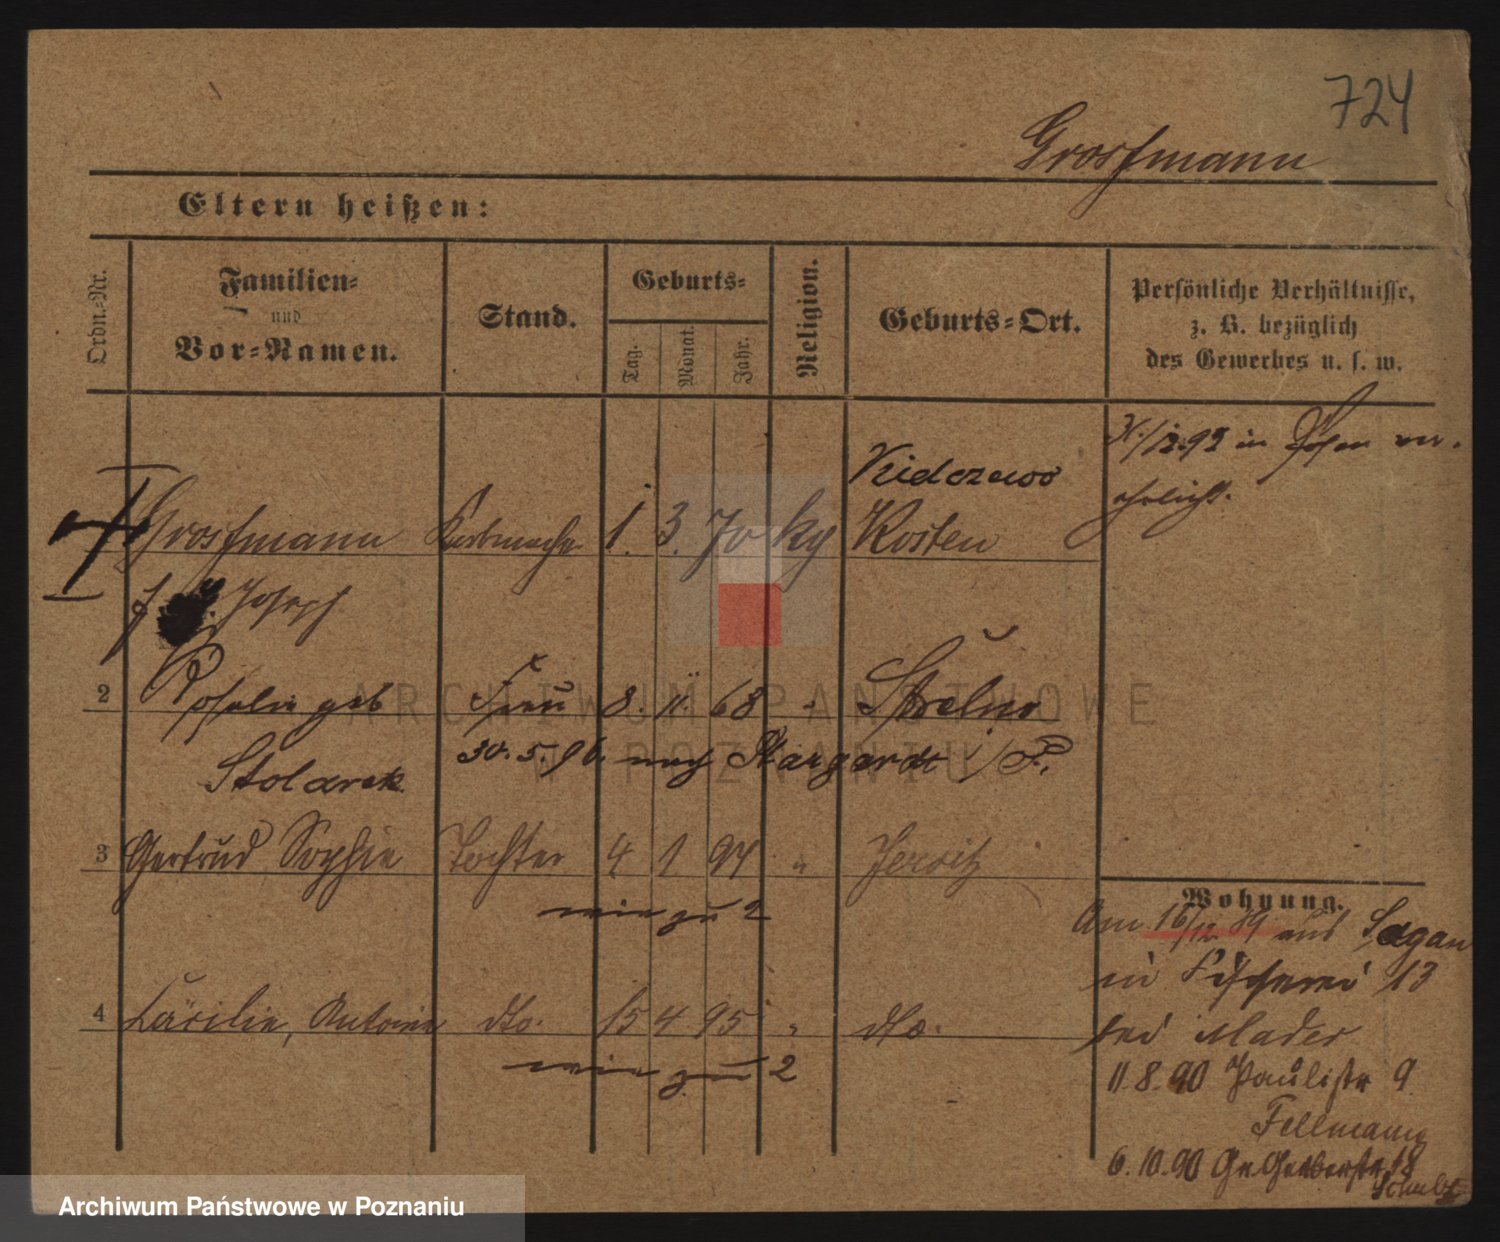 724
Grossmann
Eltern heißen:
Ordn.-Nr.
Familien- und Vor-Namen.
Stand.
Geburts-
Tag.
Monat.
Jahr.
Religion.
Geburts-Ort.
Persönliche Verhältnisse,
z. B. bezüglich
des Gewerbes u. s. w.
/12.92 in Posen ver-
ehelicht.
Kidozewo
Grossmann 1. 3. 70 kg Kosten
Joseph
2 Rosalie geb Frau 8. 11. 68 " Strelno
Stolarek
30. 5. 96. nach Stargardt i/P.
3 Gertrud Sophie Tochter 4 1 94 " Jersitz
wie zu 2
4 Cäcilie, Antonie dto. 15 4 95 " dto.
wie zu 2
Wohnung.
Am 16/12 89 aus Sagan
in Fischerei 13
bei Mader
11.8.90 Paulistr 9
Fellmann
6.10.90 Gr. Gerberstr. 18
Schulz
ARCHIWUM PAŃSTWOWE
W POZNANIU
Archiwum Państwowe w Poznaniu